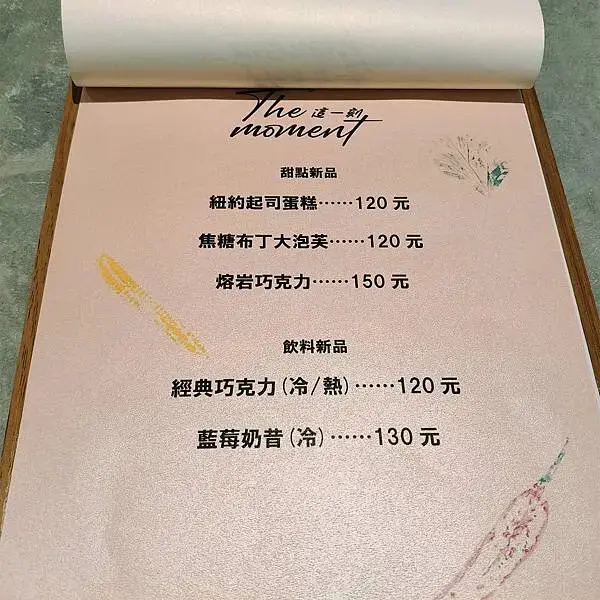 The 這一刻
moment
甜點新品
紐約起司蛋糕……120 元
焦糖布丁大泡芙……120 元
熔岩巧克力……150 元
飲料新品
經典巧克力(冷/熱)……120 元
藍莓奶昔(冷)……130 元